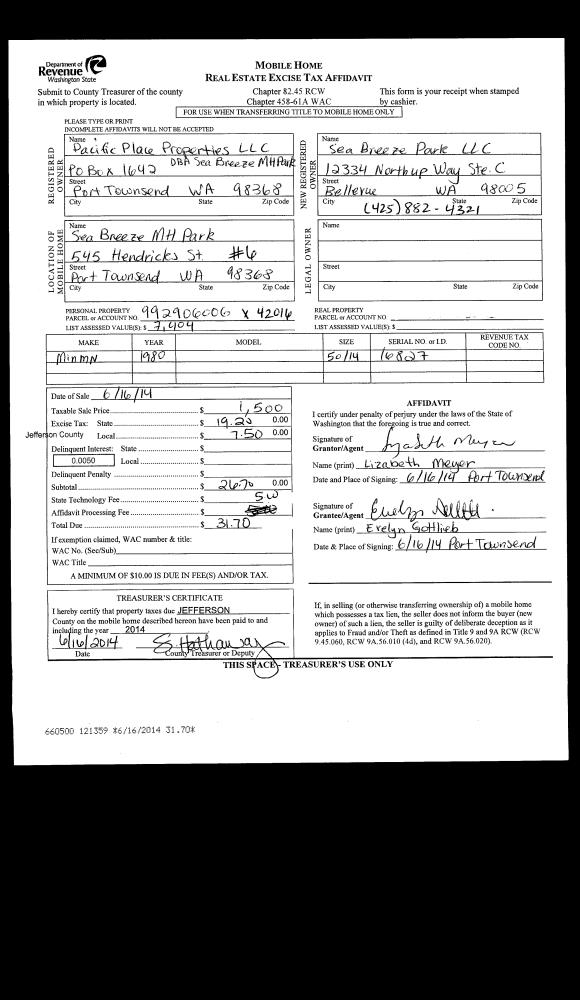 Department of
Revenue
Washington State
MOBILE HOME
REAL ESTATE EXCISE TAX AFFIDAVIT
Submit to County Treasurer of the county
in which property is located.
Chapter 82.45 RCW
Chapter 458-61A WAC
This form is your receipt when stamped
by cashier.
FOR USE WHEN TRANSFERRING TITLE TO MOBILE HOME ONLY
PLEASE TYPE OR PRINT
INCOMPLETE AFFIDAVITS WILL NOT BE ACCEPTED
REGISTERED OWNER
Name
Pacific Place Properties LLC
DBA Sea Breeze MH Park
PO Box 1642
Street
Port Townsend WA 98368
City State Zip Code
NEW REGISTERED OWNER
Name
Sea Breeze Park LLC
12334 Northup Way Ste. C
Street
Bellevue WA 98005
City State Zip Code
(425) 882-4321
LOCATION OF MOBILE HOME
Name
Sea Breeze MH Park
545 Hendricks St. #6
Street
Port Townsend WA 98368
City State Zip Code
LEGAL OWNER
Name
Street
City State Zip Code
PERSONAL PROPERTY
PARCEL or ACCOUNT NO. 992906006 x 42016
LIST ASSESSED VALUE(S): $ 7,404
REAL PROPERTY
PARCEL or ACCOUNT NO.
LIST ASSESSED VALUE(S): $
MAKE YEAR MODEL SIZE SERIAL NO. or I.D. REVENUE TAX CODE NO.
MinMN 1980 50/14 16827
Date of Sale 6/16/14
Taxable Sale Price $ 1,500
Excise Tax: State $ 19.20 0.00
Jefferson County Local $ 7.50 0.00
Delinquent Interest: State $
0.0050 Local $
Delinquent Penalty $
Subtotal $ 26.70 0.00
State Technology Fee $ 5.00
Affidavit Processing Fee $
Total Due $ 31.70
If exemption claimed, WAC number & title:
WAC No. (Sec/Sub)
WAC Title
A MINIMUM OF $10.00 IS DUE IN FEE(S) AND/OR TAX.
AFFIDAVIT
I certify under penalty of perjury under the laws of the State of
Washington that the foregoing is true and correct.
Signature of
Grantor/Agent Lizabeth Meyer
Name (print) Lizabeth Meyer
Date and Place of Signing: 6/16/14 Port Townsend
Signature of
Grantee/Agent Evelyn Gottlieb
Name (print) Evelyn Gottlieb
Date & Place of Signing: 6/16/14 Port Townsend
TREASURER'S CERTIFICATE
I hereby certify that property taxes due JEFFERSON
County on the mobile home described hereon have been paid to and
including the year 2014
6/16/2014 S Hathaway
Date County Treasurer or Deputy
If, in selling (or otherwise transferring ownership of) a mobile home
which possesses a tax lien, the seller does not inform the buyer (new
owner) of such a lien, the seller is guilty of deliberate deception as it
applies to Fraud and/or Theft as defined in Title 9 and 9A RCW (RCW
9.45.060, RCW 9A.56.010 (4d), and RCW 9A.56.020).
THIS SPACE - TREASURER'S USE ONLY
660500 121359 *6/16/2014 31.70*